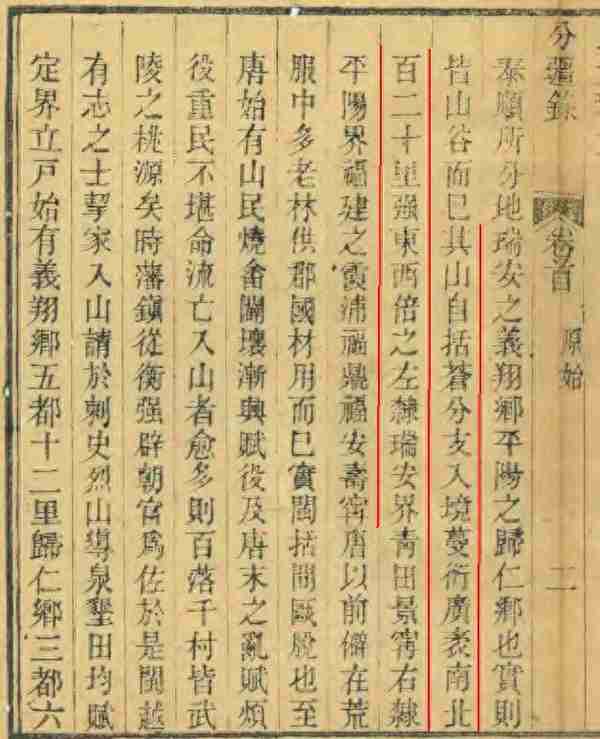 分疆錄 卷首 原始 二
泰順所分地瑞安之義翔鄉平陽之歸仁鄉也實則
皆山谷而已其山自括蒼分支入境蔓衍廣袤南北
百二十里强東西倍之左隸瑞安界靑田景甯右隸
平陽界福建之霞浦福鼎福安壽甯唐以前僻在荒
服中多老林供郡國材用而已實閩括間甌脫也至
唐始有山民燒畬闢壤漸興賦役及唐末之亂賦煩
役重民不堪命流亡入山者愈多則百落千村皆武
陵之桃源矣時藩鎮從衡强辟朝官爲佐於是閩越
有志之士挈家入山請於刺史烈山導泉墾田均賦
定界立戸始有義翔鄉五都十二里歸仁鄉三都六